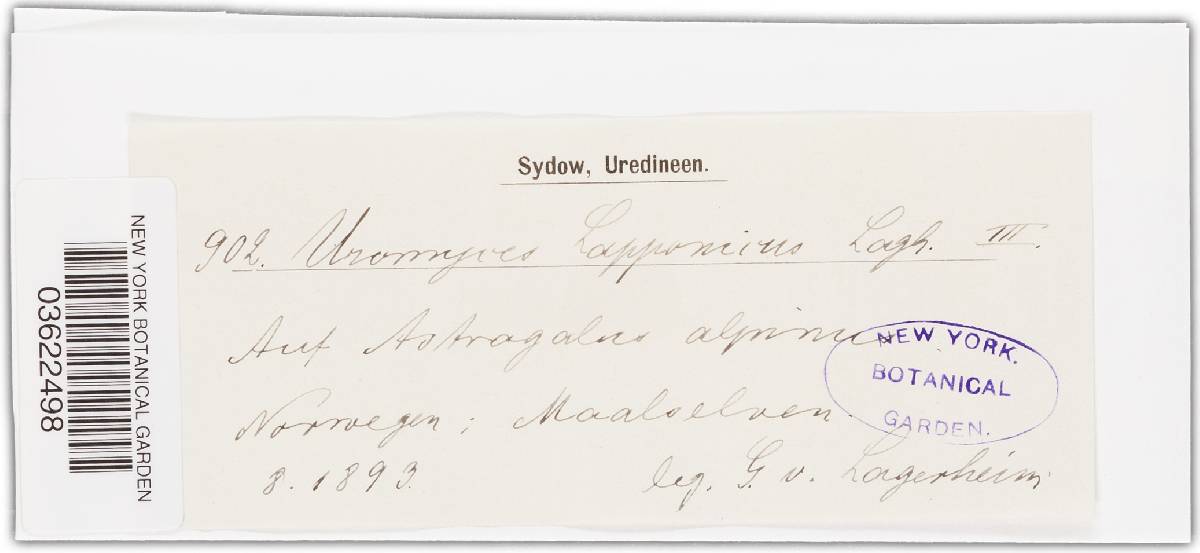 Sydow, Uredineen.
902. Uromyces Lapponicus Lagh. III.
Auf Astragalus alpinus
Norwegen; Maalselven
8. 1893.
leg. G. v. Lagerheim
NEW YORK.
BOTANICAL
GARDEN.
NEW YORK BOTANICAL GARDEN
03622498